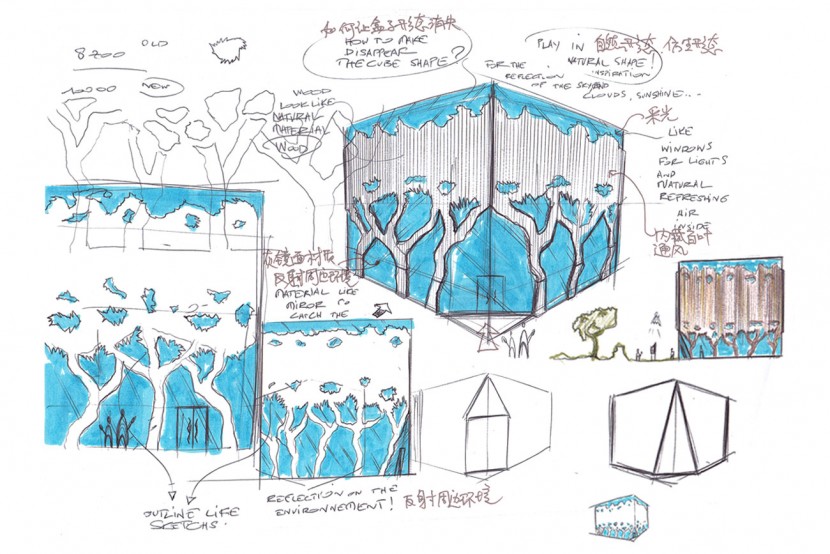 8700 OLD
10000 NEW
如何让盒子形态消失
HOW TO MAKE
DISAPPEAR
THE CUBE SHAPE?
PLAY IN 自然形态,仿生形态
NATURAL SHAPE!
INSPIRATION
FOR THE
REFLECTION
OF THE SKY AND
CLOUDS, SUNSHINE...
WOOD
LOOK LIKE
NATURAL
MATERIAL
WOOD
采光
LIKE
WINDOWS
FOR LIGHTS
AND
NATURAL
REFRESHING
AIR
INSIDE
通风
镜面材质
反射周边环境
MATERIAL LIKE
MIROR TO
CATCH THE
OUTLINE LIFE
SKETCHS.
REFLECTION ON THE
ENVIRONNEMENT! 反射周边环境